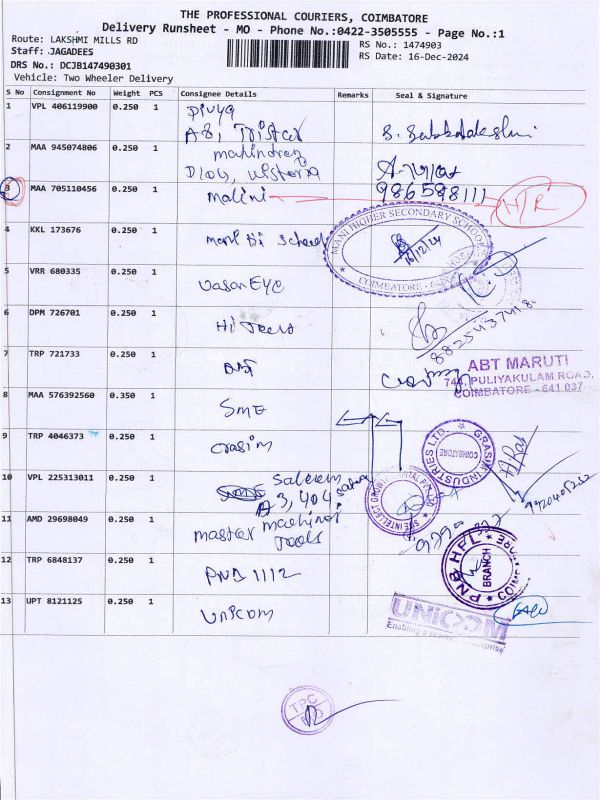 THE PROFESSIONAL COURIERS, COIMBATORE
Delivery Runsheet - MO - Phone No.:0422-3505555 - Page No.:1
Route: LAKSHMI MILLS RD
Staff: JAGADEES
DRS No.: DCJB147490301
Vehicle: Two Wheeler Delivery
RS No.: 1474903
RS Date: 16-Dec-2024
S No Consignment No Weight PCS Consignee Details Remarks Seal & Signature
1 VPL 406119900 0.250 1 Divya
A8, Tristar
2 MAA 945074806 0.250 1 mahindra
D104, wisteria
3 MAA 705110456 0.250 1 malini
986598111
4 KKL 173676 0.250 1 mani Hi School
MANI HIGHER SECONDARY SCHOOL
16/12/24
COIMBATORE
5 VRR 680335 0.250 1 vasan Eye
6 DPM 726701 0.250 1 Hi Tools
8825437418
7 TRP 721733 0.250 1
ABT MARUTI
744, PULIYAKULAM ROAD,
COIMBATORE - 641 037
8 MAA 576392560 0.350 1 SME
9 TRP 4046373 0.250 1 Grasim
GRASIM INDUSTRIES LTD.
COIMBATORE
10 VPL 225313011 0.250 1 Saleem
A3, 404
11 AMD 29698049 0.250 1 master machinos
Tools
12 TRP 6848137 0.250 1 PNB 1112
PNB HFL
BRANCH
13 UPT 8121125 0.250 1 Unicom
UNICOM
TPC
MO